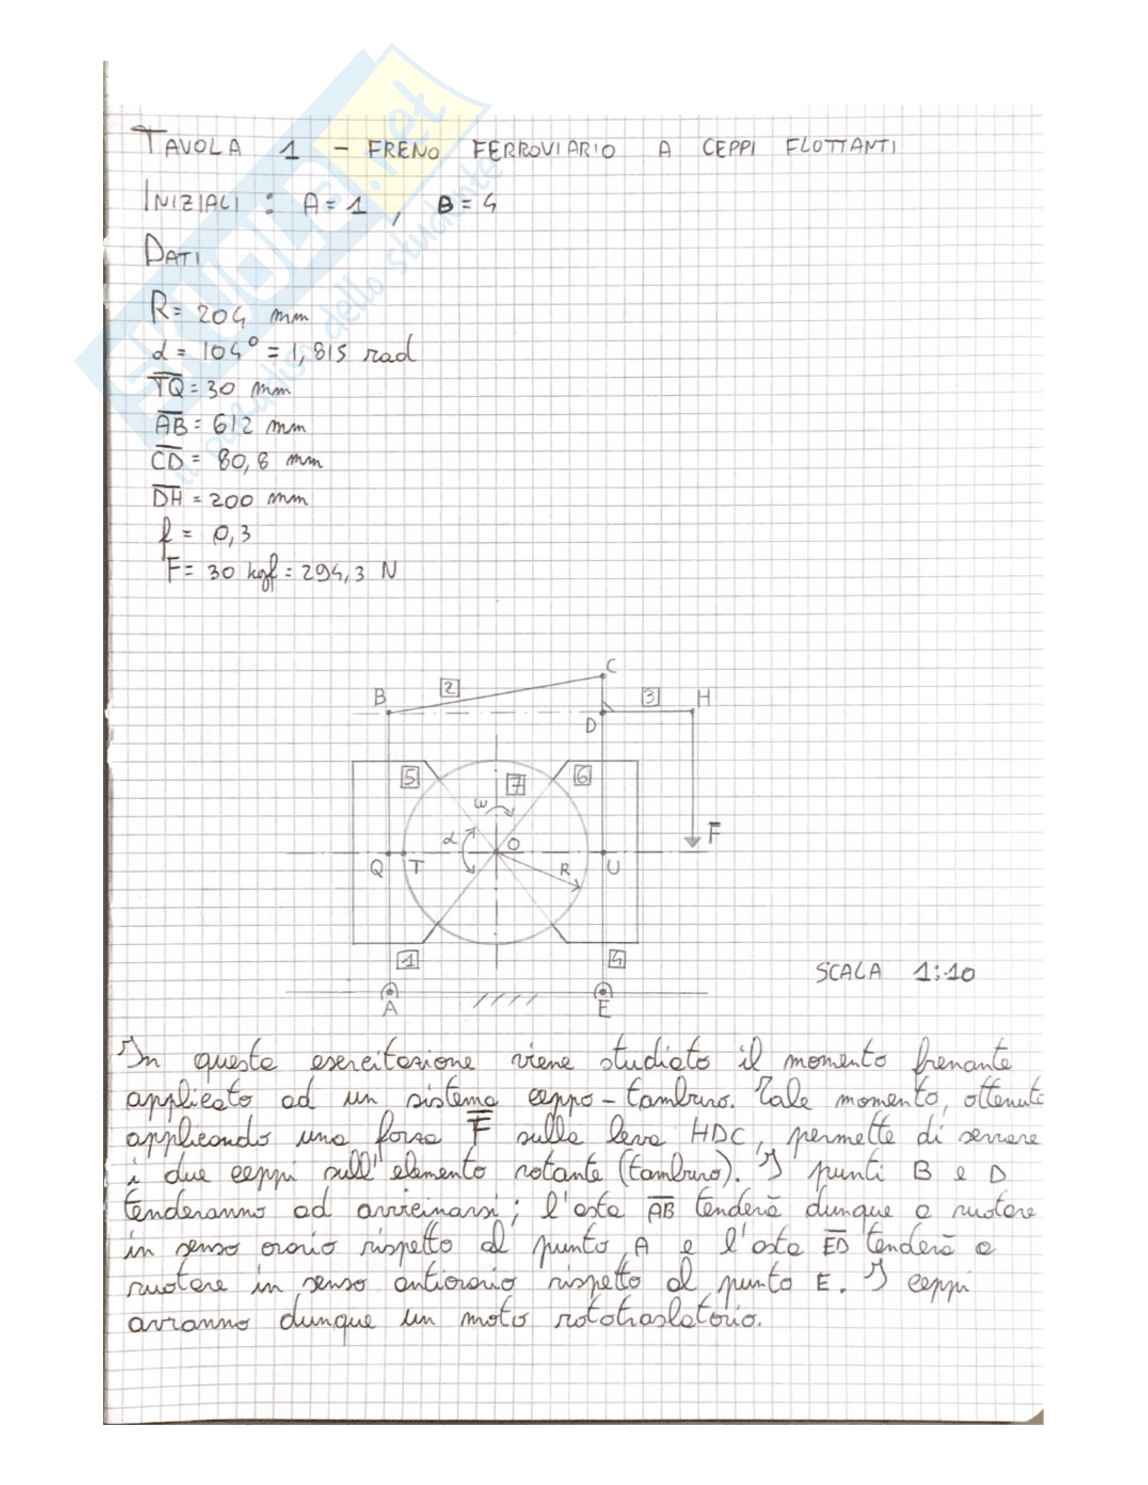 TAVOLA 1 - FRENO FERROVIARIO A CEPPI FLOTTANTI
INIZIALI : A=1 , B=4
DATI
R= 204 mm
α = 104° = 1,815 rad
TQ = 30 mm
AB = 612 mm
CD = 80,8 mm
DH = 200 mm
f = 0,3
F= 30 kgf = 294,3 N
C
B 2 3 H
D
5 7 6
ω
α O F
Q T R U
1 4
SCALA 1:10
A E
In questa esercitazione viene studiato il momento frenante
applicato ad un sistema ceppo-tamburo. Tale momento, ottenuto
applicando una forza F sulla leva HDC, permette di serrare
i due ceppi sull'elemento rotante (tamburo). I punti B e D
tenderanno ad avvicinarsi; l'asta AB tenderà dunque a ruotare
in senso orario rispetto al punto A e l'asta ED tenderà a
ruotare in senso antiorario rispetto al punto E. I ceppi
avranno dunque un moto rototraslatorio.
SKUOLA.net
il paradiso dello studente